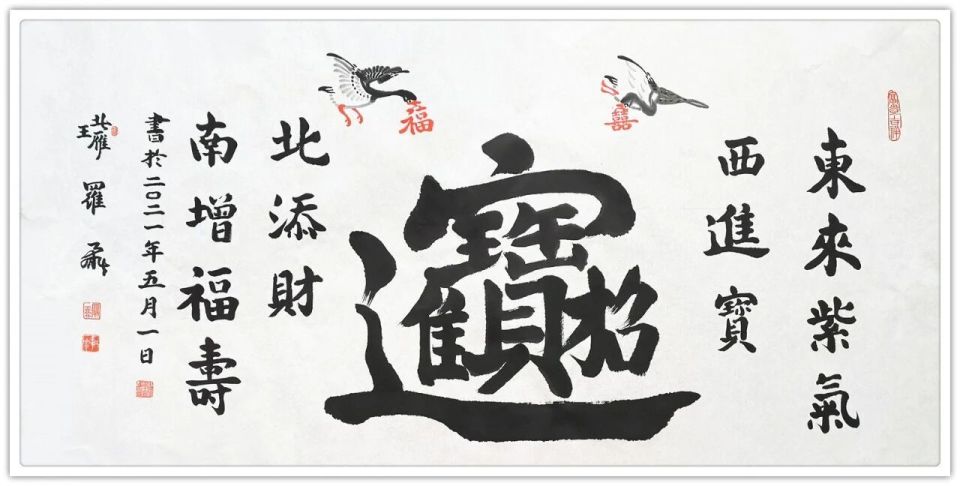 東來紫氣
西進寶
囍
招財進寶
福
北添財
南增福壽
書於二〇二一年五月一日
北雁
羅